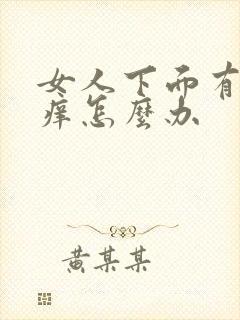 女人下面有
痒怎麼办
黄某某